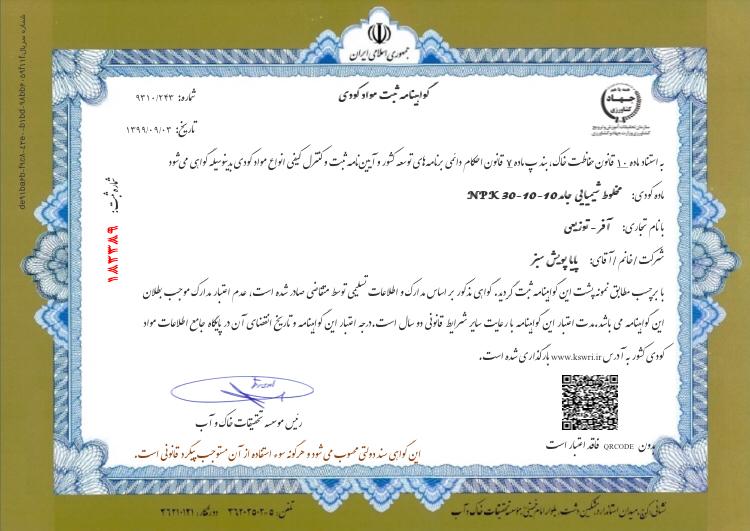 جمهوری اسلامی ایران
گواهینامه ثبت مواد کودی
همه با هم
جهاد
کشاورزی
سازمان تحقیقات، آموزش و ترویج
کشاورزی وزارت جهاد کشاورزی
شماره: ۹۳۱۰/۲۴۳
تاریخ: ۱۳۹۹/۰۹/۰۳
به استناد ماده ۱۰ قانون حفاظت خاک، بند پ ماده ۷ قانون احکام دائمی برنامه های توسعه کشور و آیین نامه ثبت و کنترل کیفی انواع مواد کودی بدینوسیله گواهی می شود
ماده کودی: مخلوط شیمیایی جامد NPK 30-10-10
با نام تجاری: آفر - توزیعی
شرکت / خانم / آقای: پایا پویش سبز
با برچسب مطابق نمونه پشت این گواهینامه ثبت گردید. گواهی مذکور بر اساس مدارک و اطلاعات تسلیمی توسط متقاضی صادر شده است، عدم اعتبار مدارک موجب بطلان
این گواهینامه می باشد. مدت اعتبار این گواهینامه با رعایت سایر شرایط قانونی دو سال است. درجه اعتبار این گواهینامه و تاریخ انقضای آن در پایگاه جامع اطلاعات مواد
کودی کشور به آدرس www.kswri.ir بارگذاری شده است.
شماره ثبت:
۱۸۲۳۸۹
رئیس موسسه تحقیقات خاک و آب
بدون QRCODE فاقد اعتبار است
این گواهی سند دولتی محسوب می شود و هرگونه سوء استفاده از آن مستوجب پیگرد قانونی است.
نشانی: کرج، میدان استاندارد، مشکین دشت، بلوار امام خمینی، موسسه تحقیقات خاک و آب
تلفن: ۵-۳۶۲۰۲۵۰۲ دورنگار: ۳۶۲۱۰۱۲۱